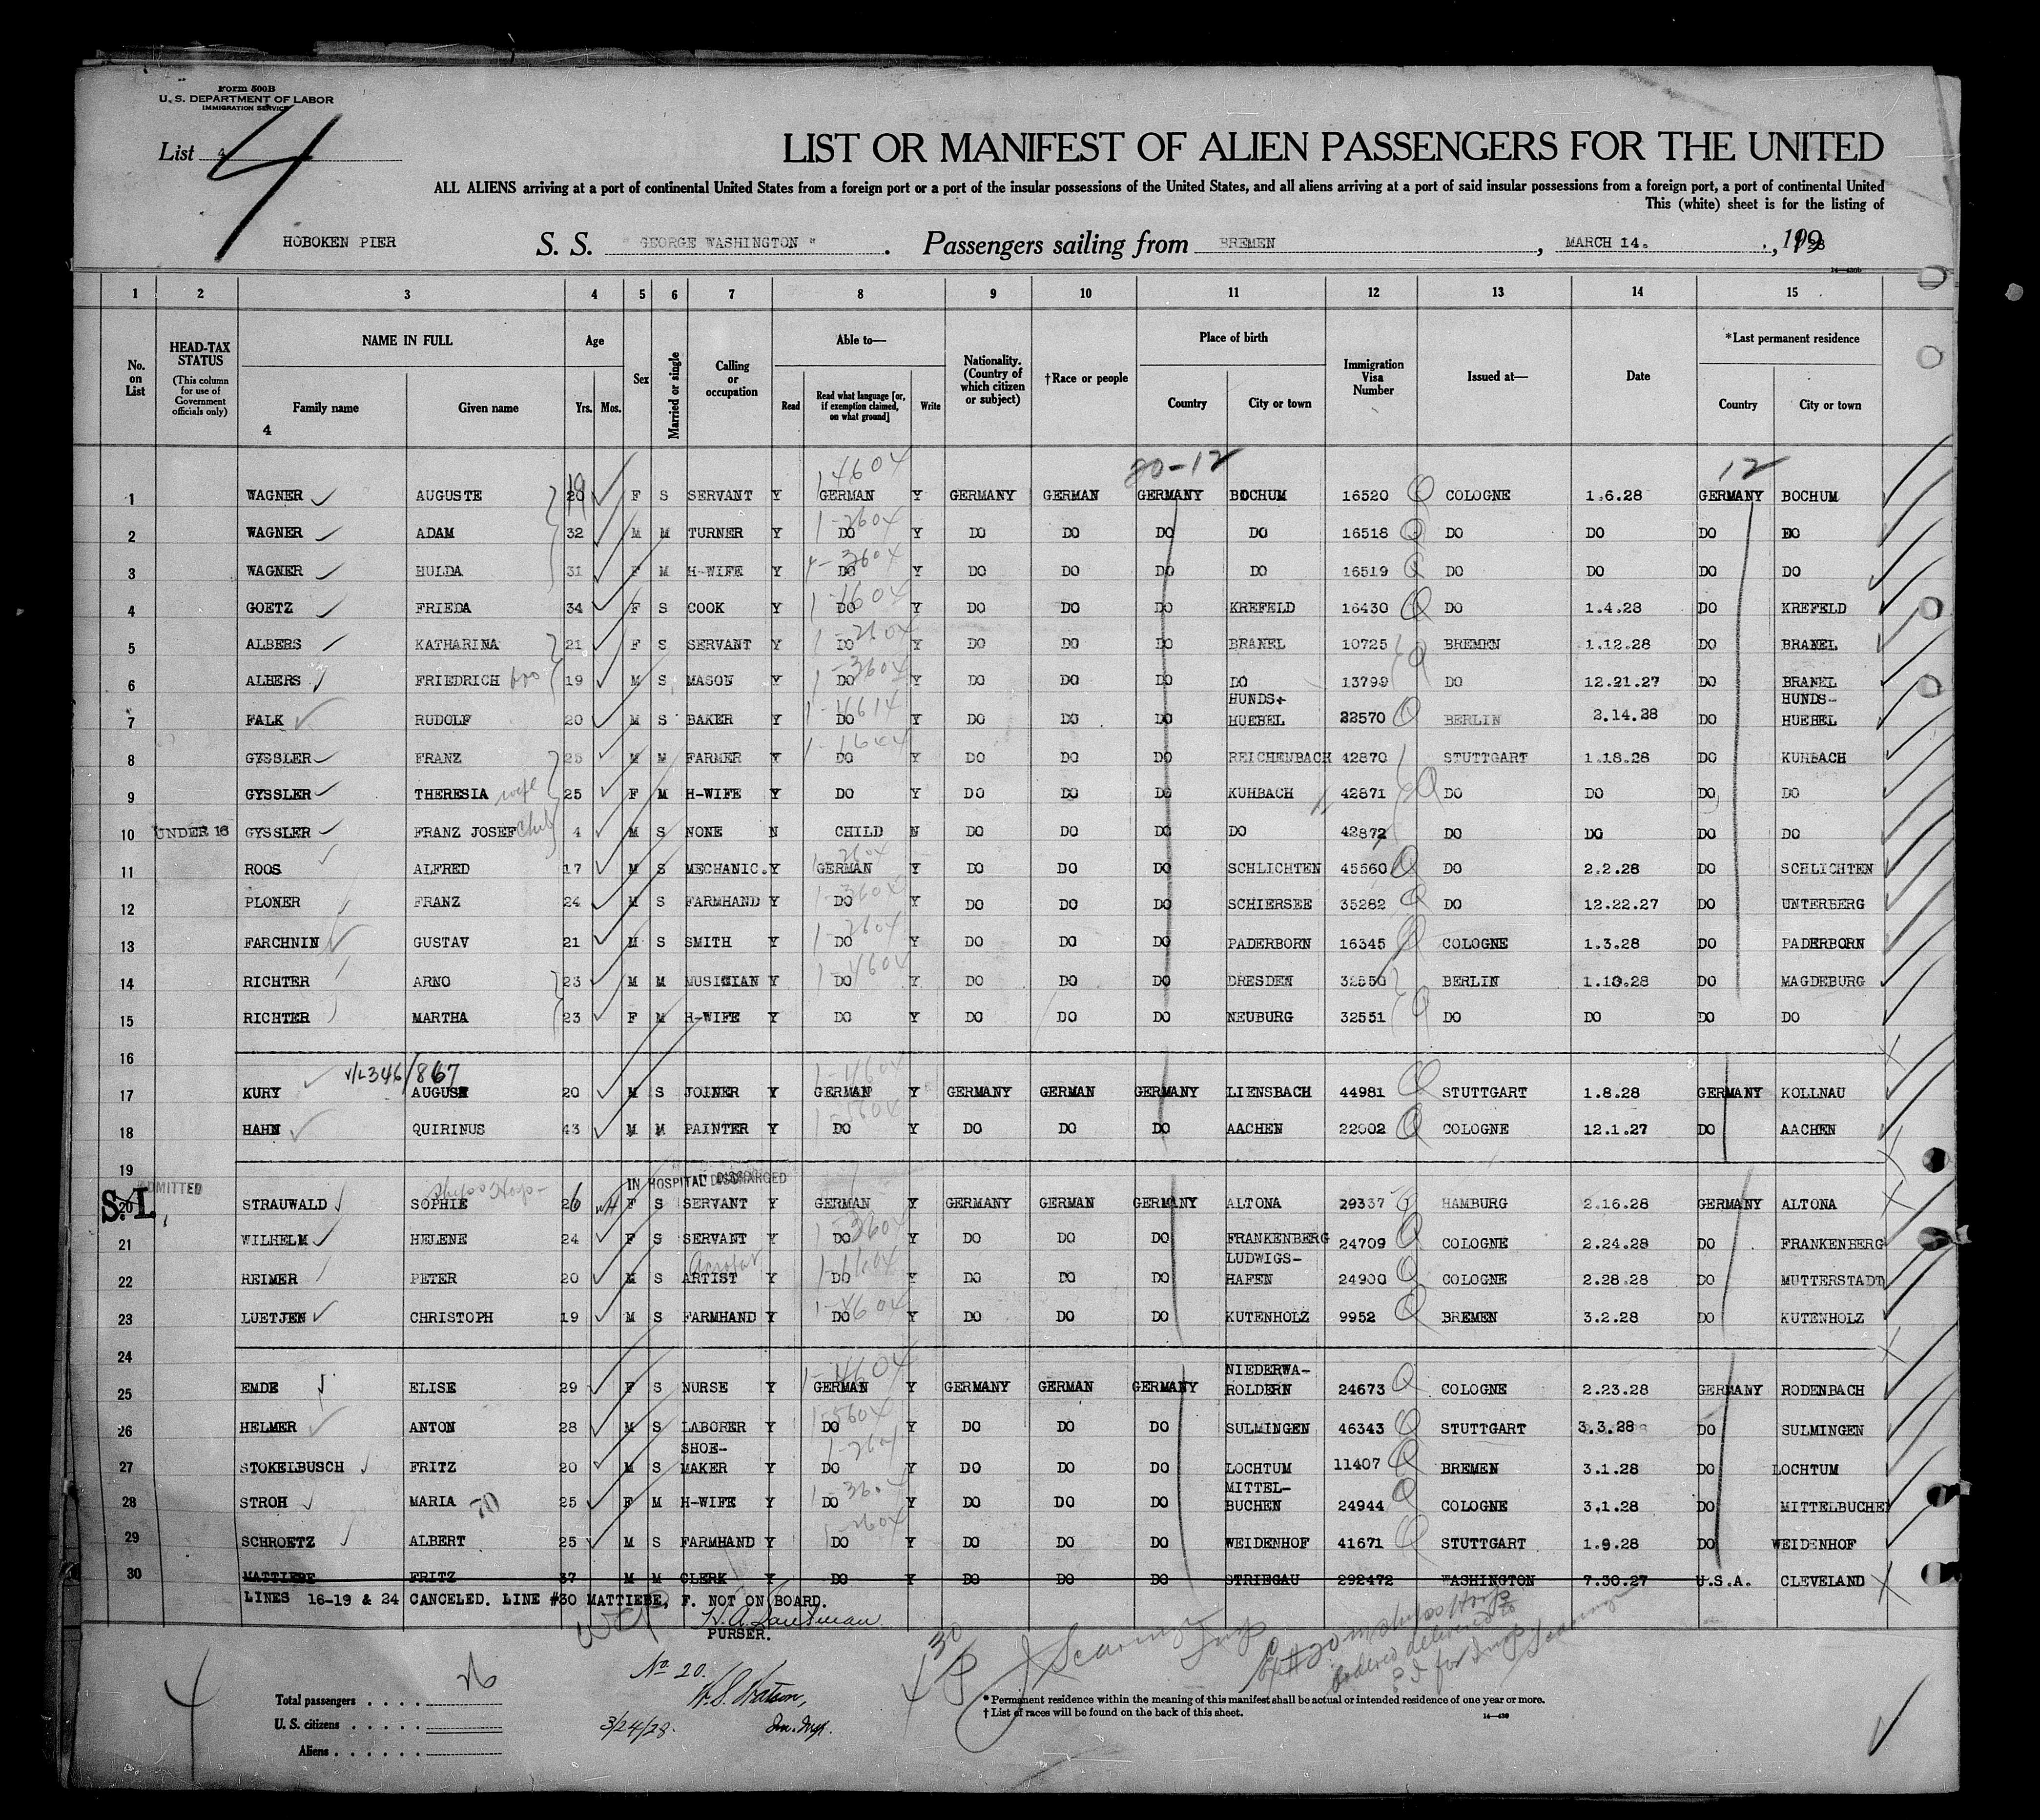 Form 500B
U. S. DEPARTMENT OF LABOR
IMMIGRATION SERVICE
List 4
4
LIST OR MANIFEST OF ALIEN PASSENGERS FOR THE UNITED
ALL ALIENS arriving at a port of continental United States from a foreign port or a port of the insular possessions of the United States, and all aliens arriving at a port of said insular possessions from a foreign port, a port of continental United
This (white) sheet is for the listing of
HOBOKEN PIER S. S. " GEORGE WASHINGTON " . Passengers sailing from BREMEN , MARCH 14. , 1928
1 2 3 4 5 6 7 8 9 10 11 12 13 14 15
No. on List HEAD-TAX STATUS (This column for use of Government officials only) NAME IN FULL Family name Given name Age Yrs. Mos. Sex Married or single Calling or occupation Able to— Read Read what language [or, if exemption claimed, on what ground] Write Nationality. (Country of which citizen or subject) †Race or people Place of birth Country City or town Immigration Visa Number Issued at— Date *Last permanent residence Country City or town
4
20-12 12
1 WAGNER AUGUSTE 19 F S SERVANT Y GERMAN Y GERMANY GERMAN GERMANY BOCHUM 16520 COLOGNE 1.6.28 GERMANY BOCHUM
2 WAGNER ADAM 32 M M TURNER Y DO Y DO DO DO DO 16518 DO DO DO DO
3 WAGNER HULDA 31 F M H-WIFE Y DO Y DO DO DO DO 16519 DO DO DO DO
4 GOETZ FRIEDA 34 F S COOK Y DO Y DO DO DO KREFELD 16430 DO 1.4.28 DO KREFELD
5 ALBERS KATHARINA 21 F S SERVANT Y DO Y DO DO DO BRANEL 10725 BREMEN 1.12.28 DO BRANEL
6 ALBERS FRIEDRICH bro 19 M S MASON Y DO Y DO DO DO DO 13799 DO 12.21.27 DO BRANEL
7 FALK RUDOLF 20 M S BAKER Y DO Y DO DO DO HUNDS- HUEBEL 22570 BERLIN 2.14.28 DO HUNDS- HUEBEL
8 GYSSLER FRANZ 25 M M FARMER Y DO Y DO DO DO REICHENBACH 42870 STUTTGART 1.18.28 DO KUHBACH
9 GYSSLER THERESIA wife 25 F M H-WIFE Y DO Y DO DO DO KUHBACH 42871 DO DO DO DO
10 UNDER 16 GYSSLER FRANZ JOSEF child 4 M S NONE N CHILD N DO DO DO DO 42872 DO DO DO DO
11 ROOS ALFRED 17 M S MECHANIC. Y GERMAN Y DO DO DO SCHLICHTEN 45560 DO 2.2.28 DO SCHLICHTEN
12 PLONER FRANZ 24 M S FARMHAND Y DO Y DO DO DO SCHIERSEE 35282 DO 12.22.27 DO UNTERBERG
13 FARCHNIN GUSTAV 21 M S SMITH Y DO Y DO DO DO PADERBORN 16345 COLOGNE 1.3.28 DO PADERBORN
14 RICHTER ARNO 23 M M MUSICIAN Y DO Y DO DO DO DRESDEN 32550 BERLIN 1.10.28 DO MAGDEBURG
15 RICHTER MARTHA 23 F M H-WIFE Y DO Y DO DO DO NEUBURG 32551 DO DO DO DO
16
V/L346/867
17 KURY AUGUST 20 M S JOINER Y GERMAN Y GERMANY GERMAN GERMANY LIENSBACH 44981 STUTTGART 1.8.28 GERMANY KOLLNAU
18 HAHN QUIRINUS 43 M M PAINTER Y DO Y DO DO DO AACHEN 22002 COLOGNE 12.1.27 DO AACHEN
19
ADMITTED IN HOSPITAL DISCHARGED
S.I. 20 STRAUWALD SOPHIE 26 F S SERVANT Y GERMAN Y GERMANY GERMAN GERMANY ALTONA 29337 HAMBURG 2.16.28 GERMANY ALTONA
21 WILHELM HELENE 24 F S SERVANT Y DO Y DO DO DO FRANKENBERG 24709 COLOGNE 2.24.28 DO FRANKENBERG
22 REIMER PETER 20 M S ARTIST Acrobat Y DO Y DO DO DO LUDWIGS- HAFEN 24900 COLOGNE 2.28.28 DO MUTTERSTADT
23 LUETJEN CHRISTOPH 19 M S FARMHAND Y DO Y DO DO DO KUTENHOLZ 9952 BREMEN 3.2.28 DO KUTENHOLZ
24
25 EMDE ELISE 29 F S NURSE Y GERMAN Y GERMANY GERMAN GERMANY NIEDERWA- ROLDERN 24673 COLOGNE 2.23.28 GERMANY RODENBACH
26 HELMER ANTON 28 M S LABORER Y DO Y DO DO DO SULMINGEN 46343 STUTTGART 3.3.28 DO SULMINGEN
27 STOKELBUSCH FRITZ 20 M S SHOE- MAKER Y DO Y DO DO DO LOCHTUM 11407 BREMEN 3.1.28 DO LOCHTUM
28 STROH MARIA 25 F M H-WIFE Y DO Y DO DO DO MITTEL- BUCHEN 24944 COLOGNE 3.1.28 DO MITTELBUCHE
29 SCHROETZ ALBERT 25 M S FARMHAND Y DO Y DO DO DO WEIDENHOF 41671 STUTTGART 1.9.28 DO WEIDENHOF
30 MATTIEBE FRITZ 37 M M CLERK Y DO Y DO DO DO STRIEGAU 292472 WASHINGTON 7.30.27 U.S.A. CLEVELAND
LINES 16-19 & 24 CANCELED. LINE #30 MATTIEBE, F. NOT ON BOARD.
PURSER.
No. 20.
3/24/28. Im. Insp.
Total passengers
U. S. citizens
Aliens
* Permanent residence within the meaning of this manifest shall be actual or intended residence of one year or more.
† List of races will be found on the back of this sheet.